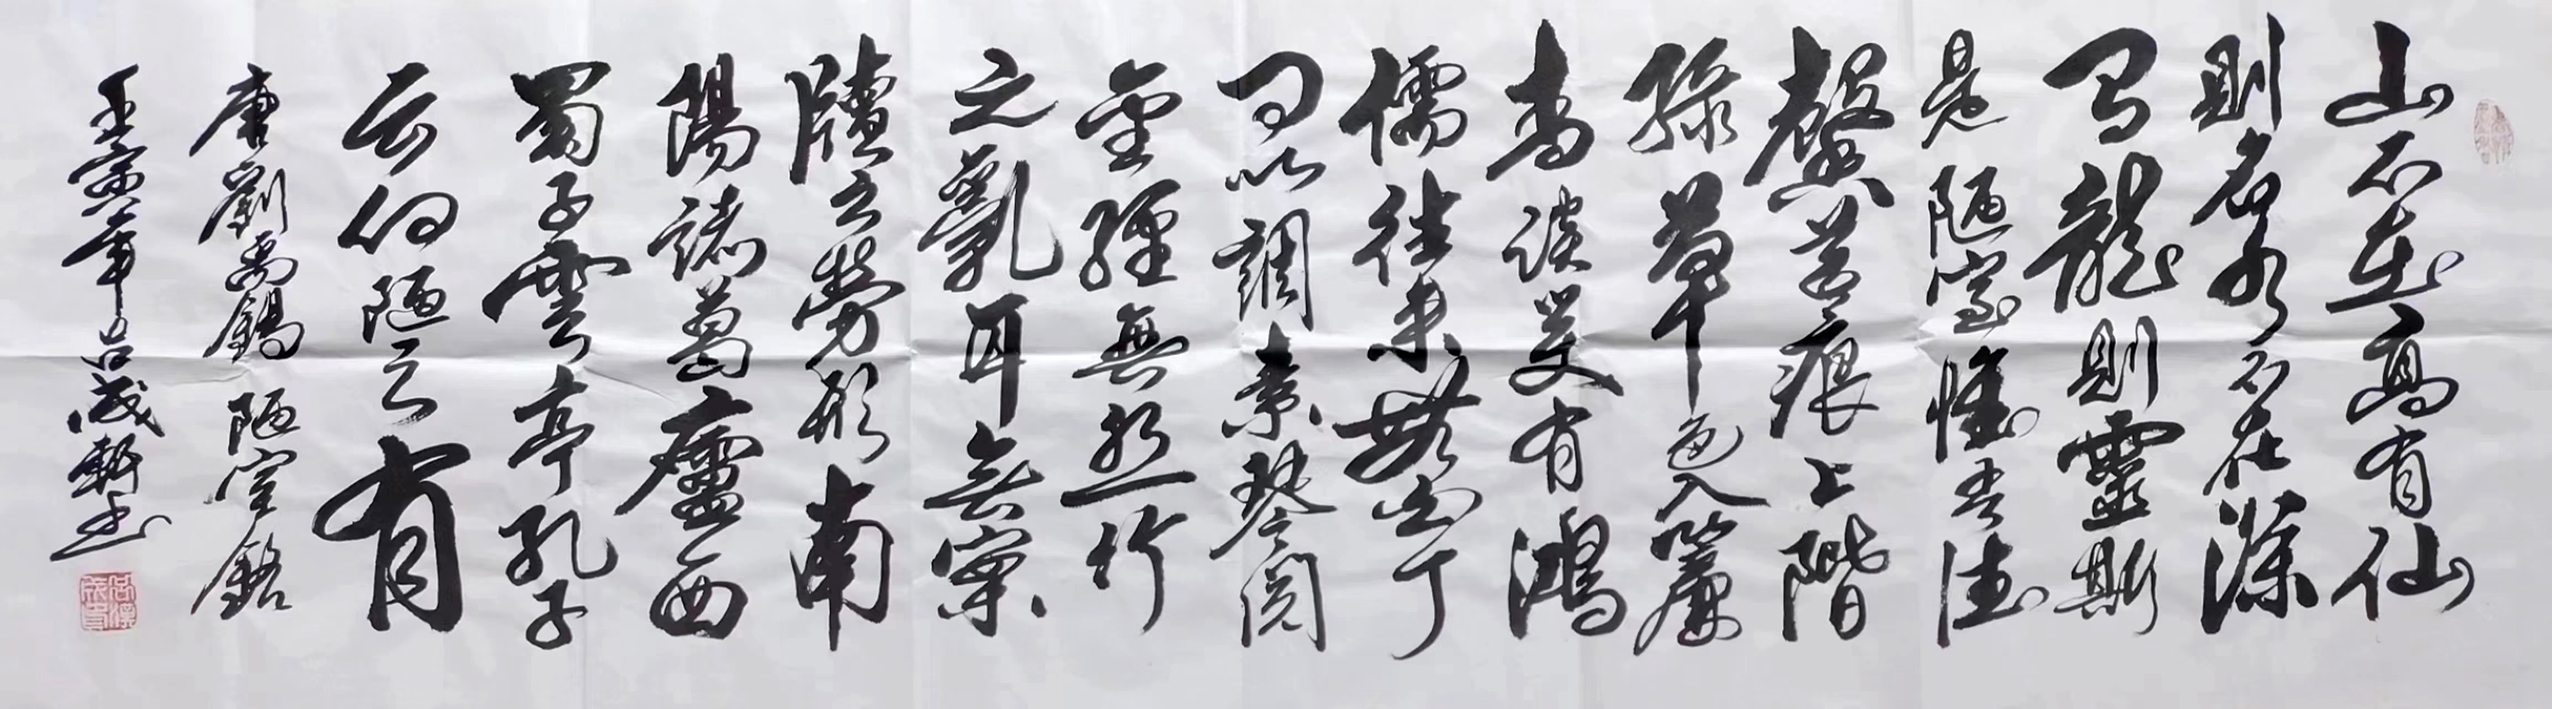 山不在高有仙
則名水不在深
有龍則靈斯
是陋室惟吾德
馨苔痕上階
綠草色入簾
青談笑有鴻
儒往來無白丁
可以調素琴閱
金經無絲竹
之亂耳無案
牘之勞形南
陽諸葛廬西
蜀子雲亭孔子
云何陋之有
唐劉禹錫陋室銘
壬寅年呂成軒书